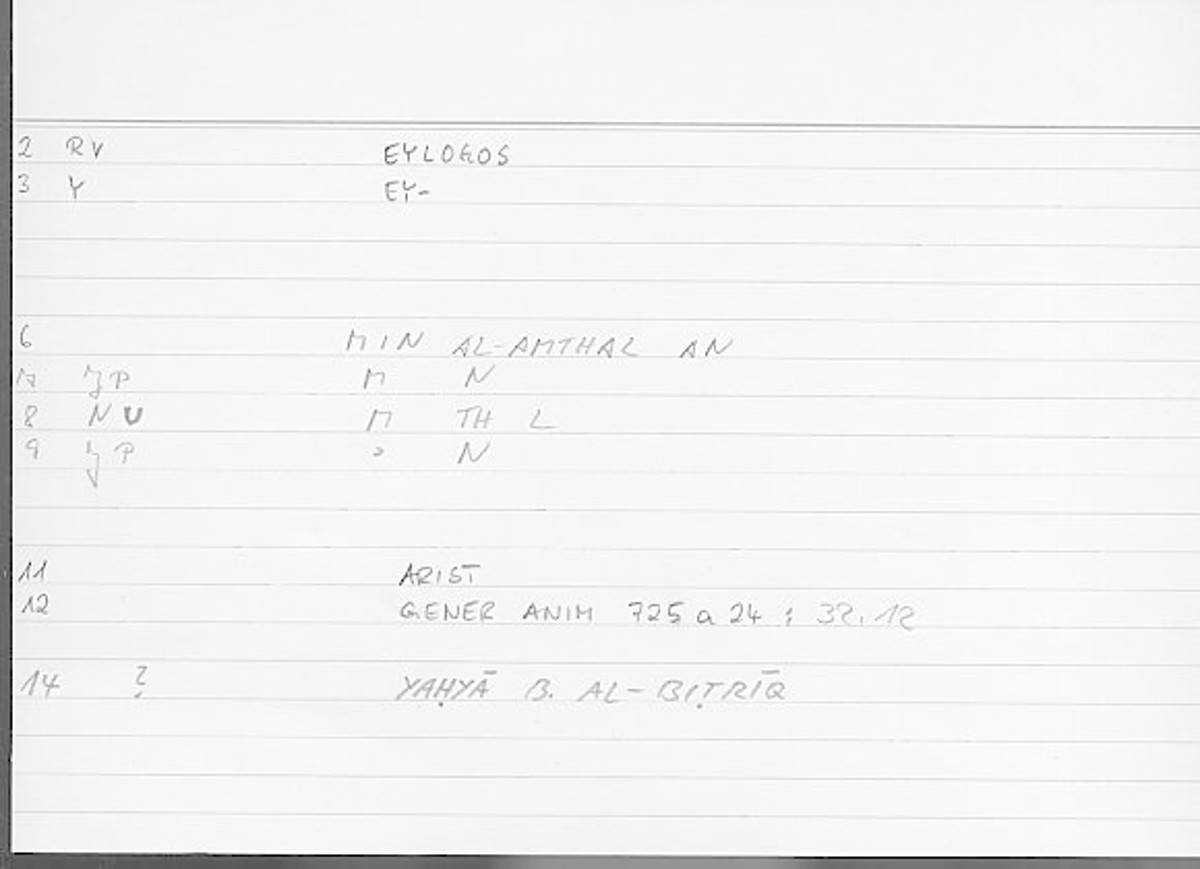 2 RV EYLOGOS
3 Y EY-
6 MIN AL-AMTHAL AN
7 P M N
8 NU M TH L
9 P N
11 ARIST
12 GENER ANIM 725 a 24 ; 32.12
14 ? YAḤYĀ B. AL-BIṬRĪQ